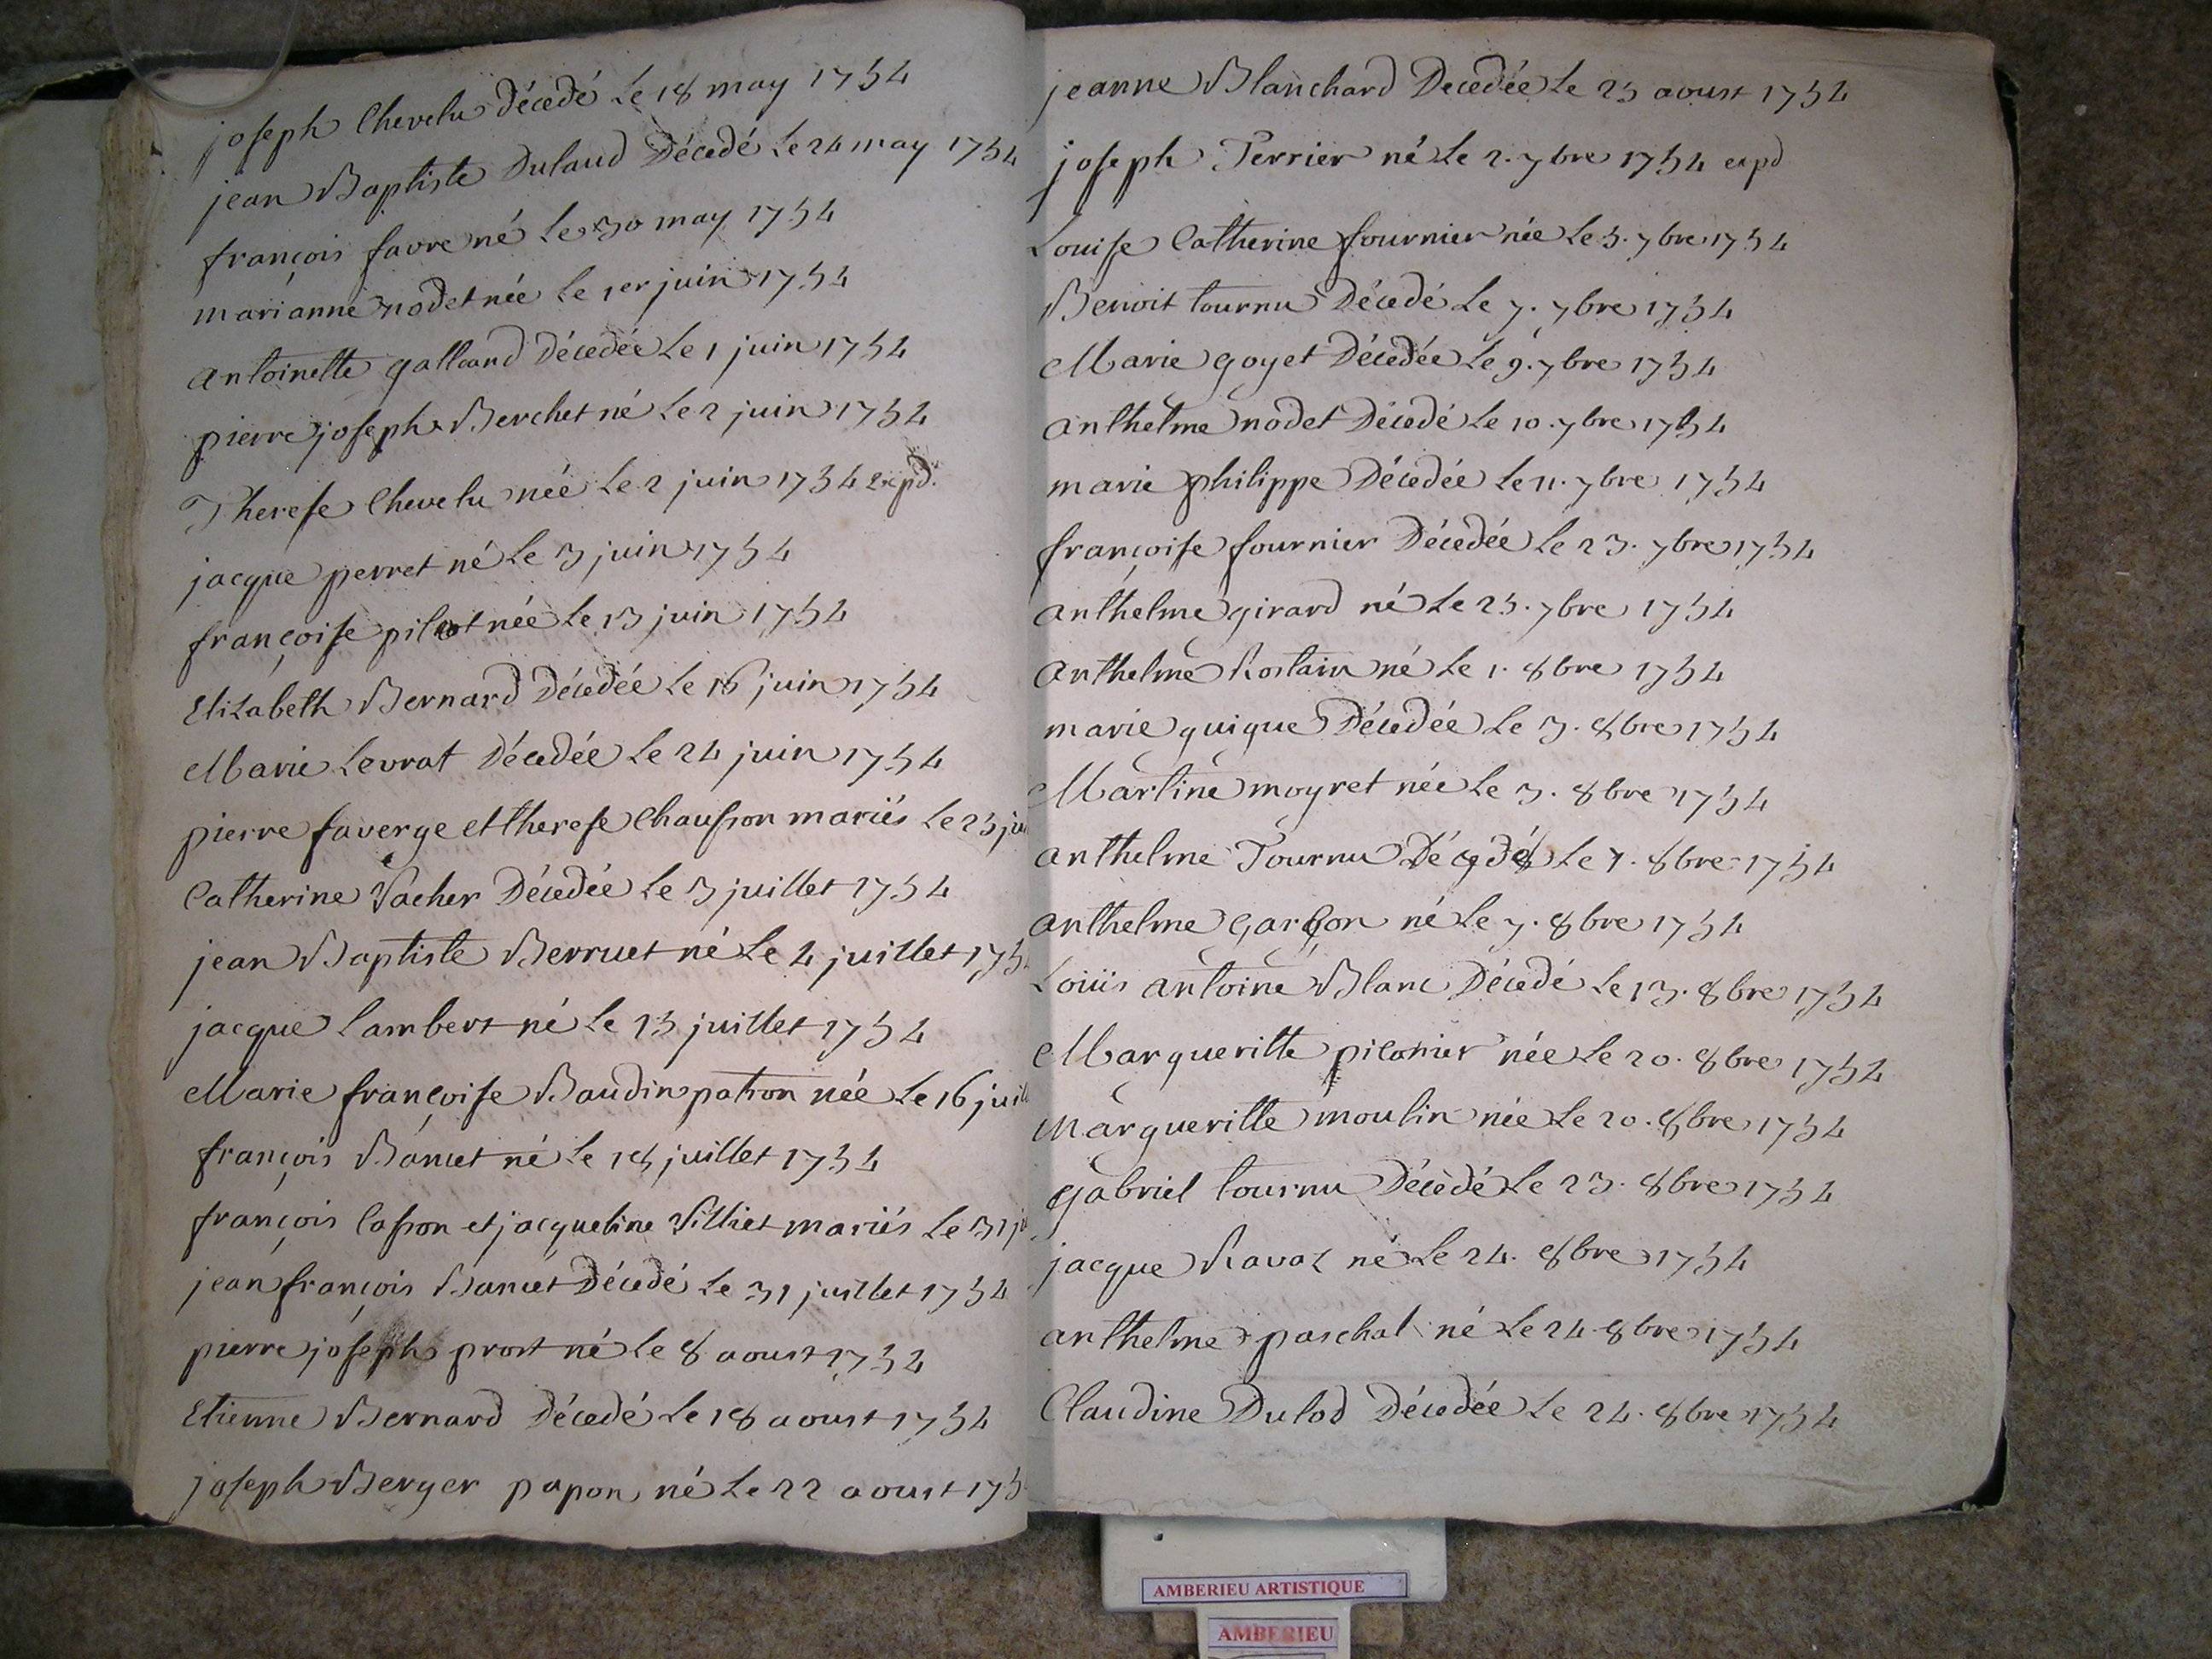 joseph Chevelu Décedé Le 18 may 1754
jean Baptiste Dulaud Décedé Le 24 may 1754
françois favre né Le 30 may 1754
marianne nodet née Le 1er juin 1754
antoinette galland Décedée Le 1 juin 1754
pierre joseph Berchet né Le 2 juin 1754
Therese Chevelu née Le 2 juin 1754 expd.
jacque perret né Le 3 juin 1754
françoise pilot née Le 13 juin 1754
Elizabeth Bernard Décedée Le 16 juin 1754
Marie Levrat Décedée Le 24 juin 1754
pierre faverge et therese Chausson mariés Le 25 jui
Catherine Vacher Décedée Le 3 juillet 1754
jean Baptiste Berruet né Le 4 juillet 175
jacque Lambert né Le 15 juillet 1754
Marie françoise Baudin patron née Le 16 juill
françois Banet né Le 18 juillet 1754
françois Casson et jacqueline Villiet mariés Le 31 ju
jean françois Banet Décedé Le 31 juillet 1754
pierre joseph prost né Le 8 aoust 1754
Etienne Bernard Décedé Le 18 aoust 1754
joseph Berger papon né Le 22 aoust 175
jeanne Blanchard Decedée Le 25 aoust 1754
joseph Terrier né Le 2. 7bre 1754 expd
Louise Catherine fournier née Le 5. 7bre 1754
Benoit tournu Décedé Le 7. 7bre 1754
Marie goyet Décedée Le 9. 7bre 1754
anthelme nodet Décedé Le 10. 7bre 1754
marie philippe Décedée Le 11. 7bre 1754
françoise fournier Décedée Le 23. 7bre 1754
anthelme girard né Le 25. 7bre 1754
anthelme Rostain né Le 1. 8bre 1754
marie guigue Décedée Le 3. 8bre 1754
Martine moyret née Le 3. 8bre 1754
anthelme Tournu Décedé Le 7. 8bre 1754
anthelme garçon né Le 7. 8bre 1754
Loüis antoine Blanc Décedé Le 13. 8bre 1754
Margueritte pilonier née Le 20. 8bre 1754
Margueritte moulin née Le 20. 8bre 1754
gabriel tournu Décedé Le 23. 8bre 1754
jacque Ravaz né Le 24. 8bre 1754
anthelme paschal né Le 24. 8bre 1754
Claudine Dulod Décedée Le 24. 8bre 1754
AMBERIEU ARTISTIQUE
AMBERIEU